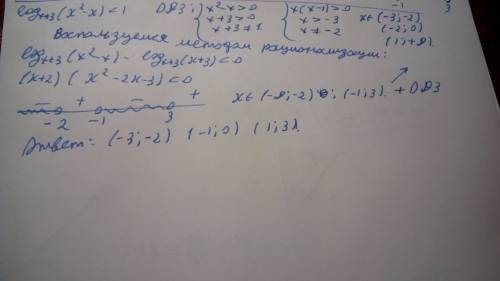 log x+3 (x²-x) < 1   ОДЗ: { x²-x>0   { x(x-1)>0   -1   3
x+3>0   x>-3   x∈(-3;-2)
x+3≠1   x≠-2   (-2;0)
(1;+∞)
Воспользуемся методом рационализации:
log x+3 (x²-x) - log x+3 (x+3) < 0
(x+2)(x²-2x-3)<0
- + - +   x∈(-∞;-2) (-1;3). + ОДЗ
-2 -1 3
Ответ: (-3;-2) (-1;0) (1;3).